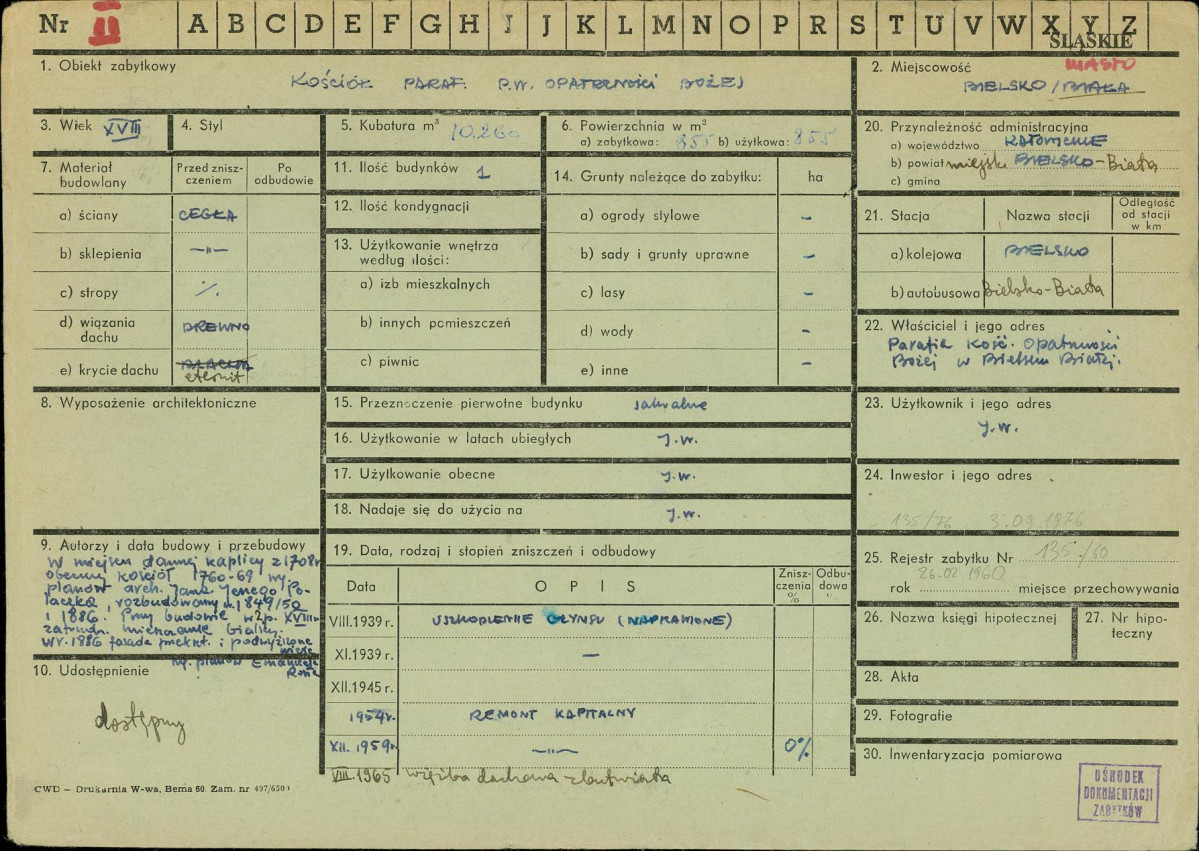 Nr II A B C D E F G H I J K L M N O P R S T U V W X Y Z
ŚLĄSKIE
1. Obiekt zabytkowy
KOŚCIÓŁ PARAF. P.W. OPATRZNOŚCI BOŻEJ
2. Miejscowość
MIASTO
BIELSKO/BIAŁA
3. Wiek XVIII
4. Styl
5. Kubatura m³ 10.260
6. Powierzchnia w m²
a) zabytkowa: 855 b) użytkowa: 855
20. Przynależność administracyjna
a) województwo KATOWICKIE
b) powiat miejski BIELSKO-Biała
c) gmina
7. Materiał budowlany
Przed zniszczeniem
Po odbudowie
a) ściany CEGŁA
b) sklepienia —"—
c) stropy ·/.
d) wiązania dachu DREWNO
e) krycie dachu BLACHA
eternit
11. Ilość budynków 1
12. Ilość kondygnacji
13. Użytkowanie wnętrza według ilości:
a) izb mieszkalnych
b) innych pomieszczeń
c) piwnic
14. Grunty należące do zabytku: ha
a) ogrody stylowe –
b) sady i grunty uprawne –
c) lasy –
d) wody –
e) inne –
21. Stacja
Nazwa stacji
Odległość od stacji w km
a) kolejowa BIELSKO
b) autobusowa Bielsko-Biała
22. Właściciel i jego adres
Parafia Kość. Opatrzności
Bożej w Bielsku Białej.
8. Wyposażenie architektoniczne
15. Przeznaczenie pierwotne budynku sakralne
16. Użytkowanie w latach ubiegłych J.w.
17. Użytkowanie obecne J.w.
18. Nadaje się do użycia na J.w.
23. Użytkownik i jego adres
J.w.
24. Inwestor i jego adres
135/76 3.09.1976
9. Autorzy i data budowy i przebudowy
W miejscu dawnej kaplicy z 1708r
obecny kościół 1760-69 wg.
planów arch. Jana Jenego Po-
laczka, rozbudowany w. 1849/50
i 1886. Przy budowie w 2 p. XVIII w.
zatrudn. mieszczanie bialscy.
W r. 1886 fasada przekszt. i podwyższone
wieże
wg. planów Emanuela
Rosta
10. Udostępnienie
dostępny
19. Data, rodzaj i stopień zniszczeń i odbudowy
Data
OPIS
Zniszczenia %
Odbudowa "
VIII.1939 r. USZKODZENIE GZYMSU (NAPRAWIONE)
XI.1939 r. —
XII.1945 r.
1954r. REMONT KAPITALNY
XII. 1959r. —"— 0%
VIII.1965 więźba dachowa
25. Rejestr zabytku Nr 135/60
rok 26.02 1960 miejsce przechowywania
26. Nazwa księgi hipotecznej
27. Nr hipoteczny
28. Akta
29. Fotografie
30. Inwentaryzacja pomiarowa
OŚRODEK
DOKUMENTACJI
ZABYTKÓW
CWD – Drukarnia W-wa, Bema 60. Zam. nr 497/650